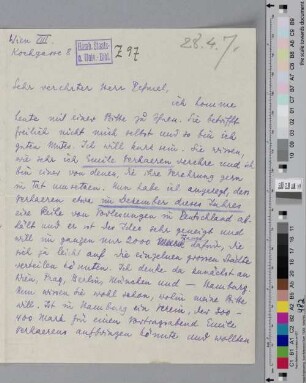 Wien VIII
Kochgasse 8
Z 97
28.4.
Sehr verehrter Herr Dehmel,
ich komme
heute mit einer Bitte zu Ihnen. Sie betrifft
freilich nicht mich selbst und so bin ich
guten Mutes. Ich will kurz sein. Sie wissen,
wie sehr ich Emile Verhaeren verehre und ich
bin einer von denen, die ihre Verehrung gern
in Tat umsetzen. Nun habe ich angeregt, dass
Verhaeren etwa im Dezember dieses Jahres
eine Reihe von Vorlesungen in Deutschland ab-
hält und er ist der Idee sehr geneigt und
will im ganzen nur 2000 Mark dafür, die
sich ja leicht auf die einzelnen grossen Städte
verteilen könnten. Ich denke da zunächst an
Wien, Prag, Berlin, München und – Hamburg.
Nun wissen Sie wohl schon, wohin meine Bitte
will. Ist in Hamburg ein Verein, der 300–
400 Mark für einen Vortragsabend Emile
Verhaerens aufbringen könnte und wollten